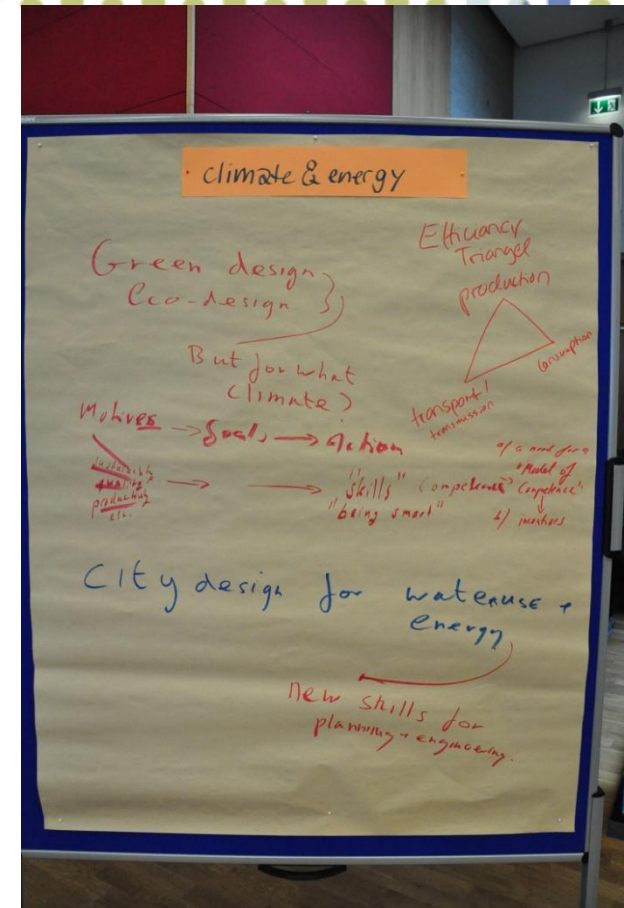 climate & energy
Green design
Eco-design
But for what
climate?
Efficiancy
Triangel
production
consumption
transport /
transmission
Motives → Goals → Action
sustainability
quality
productivity
etc.
→ → "skills" competence
"being smart"
a/ a need for a
"Model of
Competence"
b/ incentives
City design for wateruse +
energy
New skills for
planning + engineering.